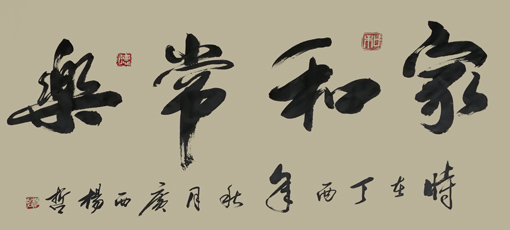 家和常樂
時在丁酉年秋月廣西楊哲